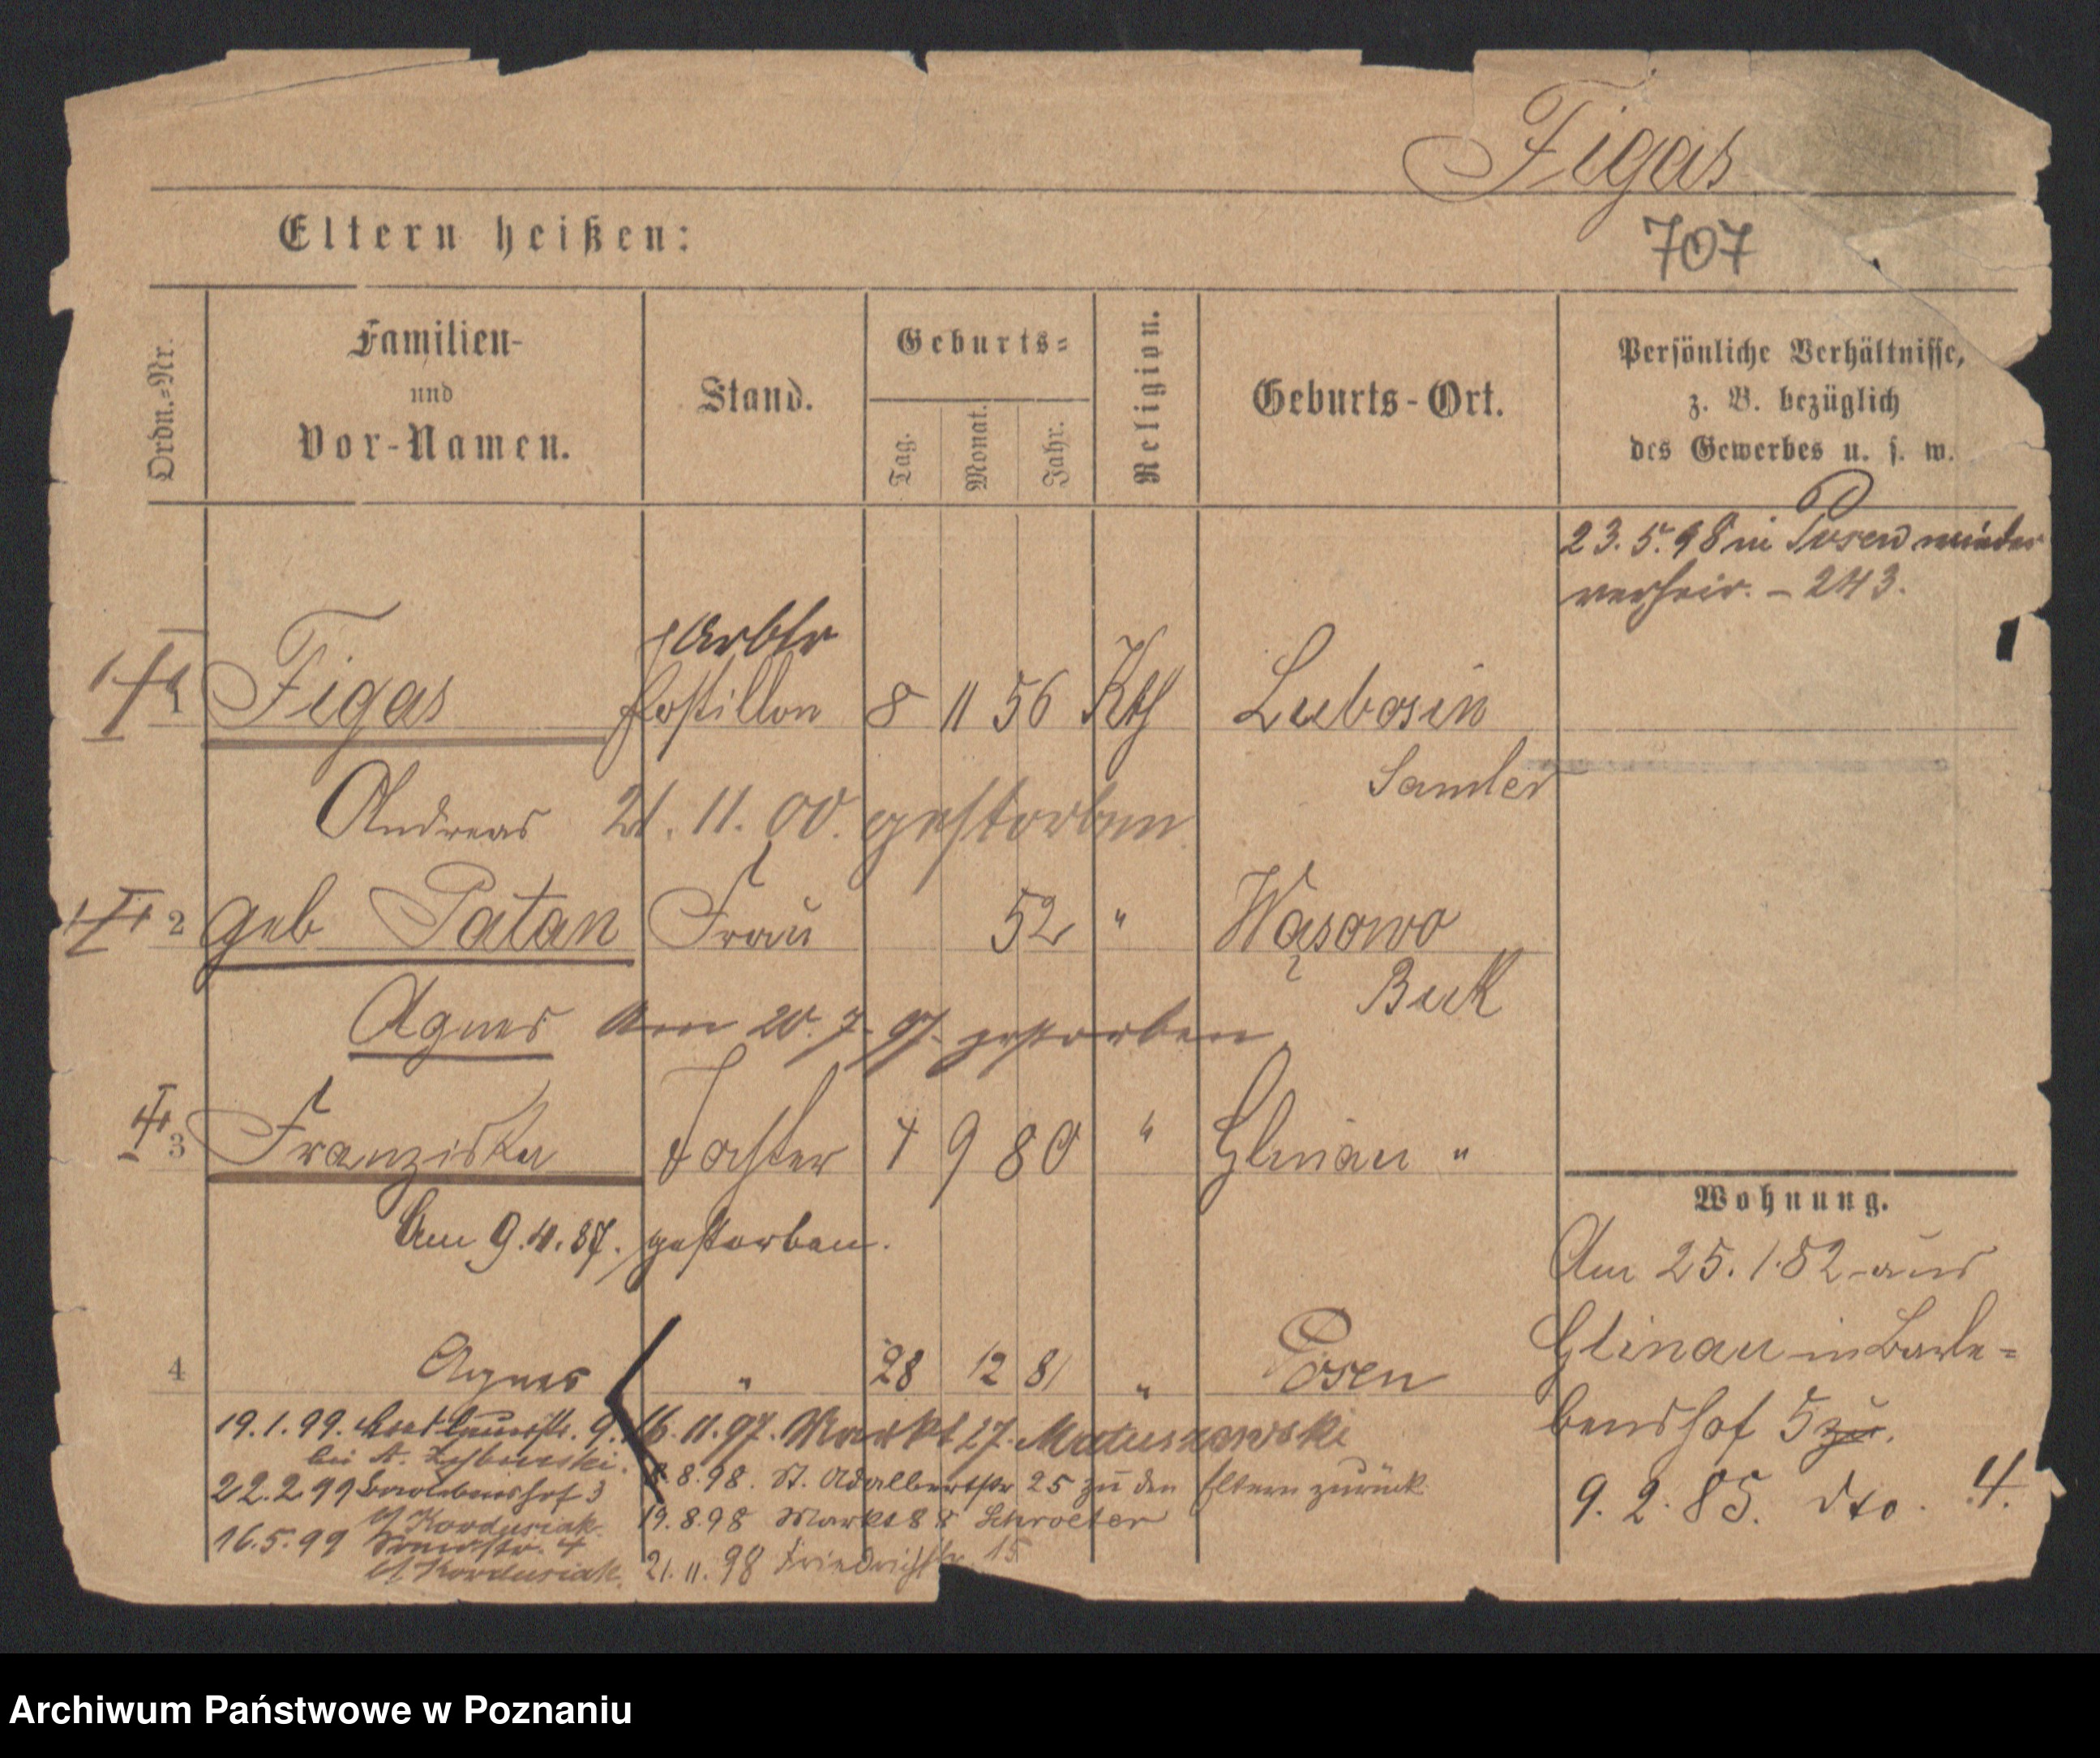 Figas
Eltern heißen:
707
Ordn.-Nr.
Familien-
und
Vor-Namen.
Stand.
Geburts-
Tag.
Monat.
Jahr.
Religion.
Geburts-Ort.
Persönliche Verhältnisse,
z. B. bezüglich
des Gewerbes u. s. w.
23.5.98 in Posen wieder
verheir. – 243.
Arbtr
1 Figas Postillon 8 11 56 Kth Lubosin
Samter
Andreas 21.11.00. gestorben
2 geb Patan Frau 52 " Wąsowo
Buk
Agnes Am 20.7.97. gestorben
3 Franziska Tochter 4 9 80 " Glinau "
Am 9.4.87. gestorben.
Wohnung.
Am 25.1.82 aus
Glinau in Barle=
benshof 5 zu.
9.2.85. dto. 4.
4 Agnes " 28 12 81 " Posen
16.11.97. Markt 27. Matuszewski
8.98. St. Adalbertstr 25 zu den Eltern zurück
19.8.98 Markt 88 Schroeter
21.11.98 Friedrichstr. 15
19.1.99. 9.
bei A.
22.2.99 Barlebenshof 3
Kordusiak
16.5.99 4
Kordusiak.
Archiwum Państwowe w Poznaniu